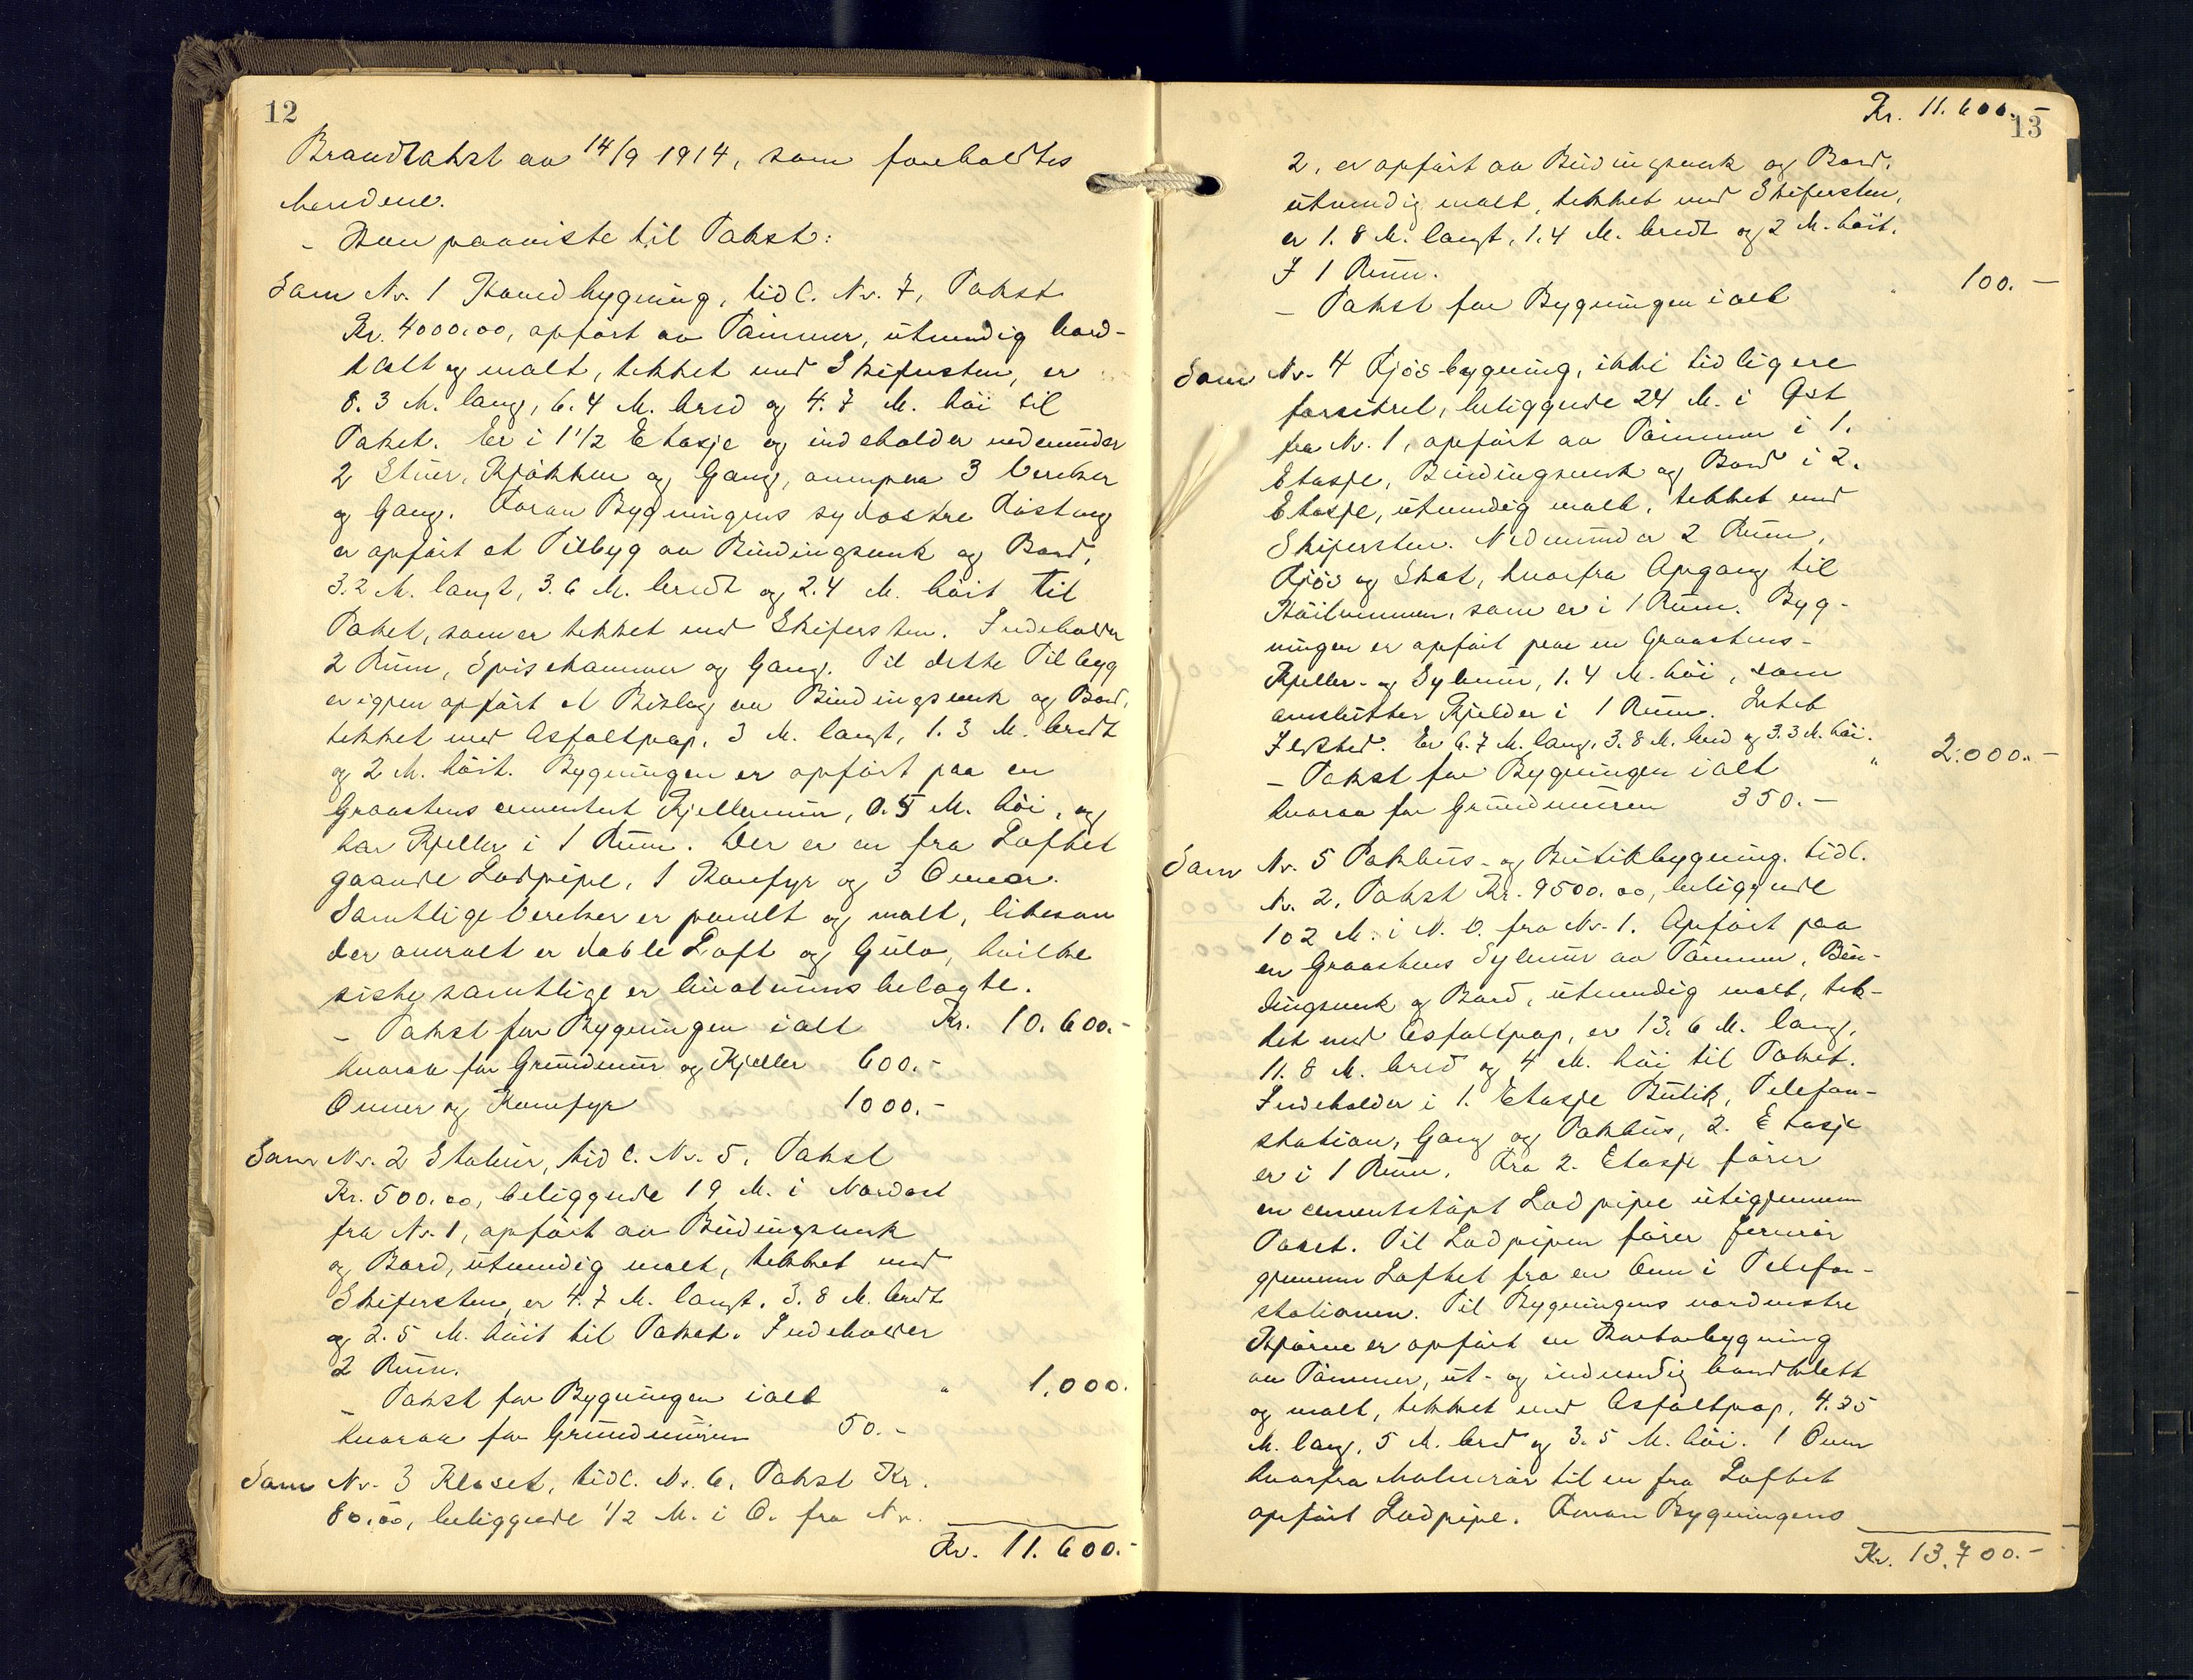 12
Brandtakst av 14/9 1914, som foreholdtes
Mændene.
- Han paaviste til Takst:
Som Nr. 1 Hovedbygning, tidl. Nr. 7, Takst
Kr. 4000.00, opført av Tømmer, utvendig bord-
klædt og malt, tekket med Skifersten, er
8.3 M. lang, 6.4 M. bred og 4.7 M. høi til
Taket. Er i 1 1/2 Etasje og indeholder nedenunder
2 Stuer, Kjøkken og Gang, ovenpaa 3 Værelser
og Gang. Foran Bygningens sydøstre Røstvæg
er opført et Tilbyg av Bindingsverk og Bord,
3.2 M. langt, 3.6 M. bredt og 2.4 M. høit til
Taket, som er tekket med Skifersten. Indeholder
2 Rum, Spisekammer og Gang. Til dette Tilbyg
er igjen opført et Bislag av Bindingsverk og Bord,
tekket med Asfaltpap, 3 M. langt, 1.3 M. bredt
og 2 M. høit. Bygningen er opført paa en
Graastens cementert Kjellermur, 0.5 M. høi, og
har Kjeller i 1 Rum. Der er en fra Loftet
gaaende Lodpipe, 1 Komfyr og 3 Ovner.
Samtlige Værelser er panelt og malt, likesom
der overalt er doble Loft og Gulv, hvilke
siste samtlige er linoleumsbelagte.
- Takst for Bygningen ialt Kr. 10.600.-
hvorav for Grundmur og Kjeller 600.-
Ovner og Komfyr 1000.-
Som Nr. 2 Stabur, tidl. Nr. 5, Takst
Kr. 500.00, beliggende 19 M. i Nordost
fra Nr. 1, opført av Bindingsverk
og Bord, utvendig malt, tekket med
Skifersten, er 4.7 M. langt, 3.8 M. bredt
og 2.5 M. høit til Taket. Indeholder
2 Rum.
- Takst for Bygningen ialt " 1.000.
hvorav for Grundmuren 50.-
Som Nr. 3 Kloset, tidl. Nr. 6, Takst Kr.
80.00, beliggende 1/2 M. i O. fra Nr.
Kr. 11.600.-
Kr. 11.600.-
13
2, er opført av Bindingsverk og Bord,
utvendig malt, tekket med Skifersten,
er 1.8 M. langt, 1.4 M. bredt og 2 M. høit.
I 1 Rum.
- Takst for Bygningen ialt " 100.-
Som Nr. 4 Fjøsbygning, ikke tidligere
forsikret, beliggende 24 M. i Øst
fra Nr. 1, opført av Tømmer i 1.
Etasje, Bindingsverk og Bord i 2.
Etasje, utvendig malt, tekket med
Skifersten. Nedenunder 2 Rum,
Fjøs og Skot, hvorfra Opgang til
Høirummen, som er i 1 Rum. Byg-
ningen er opført paa en Graastens-
Kjeller- og Sylmur, 1.4 M. høi, som
omslutter Kjelder i 1 Rum. Intet
Ildsted. Er 6.7 M. lang, 3.8 M. bred og 3.3 M. høi.
- Takst for Bygningen ialt " 2.000.-
hvorav for Grundmuren 350.-
Som Nr. 5 Pakhus- og Butikbygning. tidl.
Nr. 2, Takst Kr. 9500.00, beliggende
102 M. i N. O. fra Nr. 1. Opført paa
en Graastens Sylmur av Tømmer, Bin-
dingsverk og Bord, utvendig malt, tek-
ket med Asfaltpap, er 13.6 M. lang,
11.8 M. bred og 4 M. høi til Taket.
Indeholder i 1. Etasje Butik, Telefon-
station, Gang og Pakhus, 2. Etasje
er i 1 Rum. Fra 2. Etasje fører
en cementstøpt Lodpipe utigjennem
Taket. Til Lodpipen fører Jernrør
gjennem Loftet fra en Ovn i Telefon-
stationen. Til Bygningens nordvestre
Hjørne er opført en Kontorbygning
av Tømmer, ut- og indvendig bordklædt
og malt, tekket med Asfaltpap, 4.35
M. lang, 5 M. bred og 3.5 M. høi. 1 Ovn
hvorfra Malmrør til en fra Loftet
opført Lodpipe. Foran Bygningens
Kr. 13.700.-